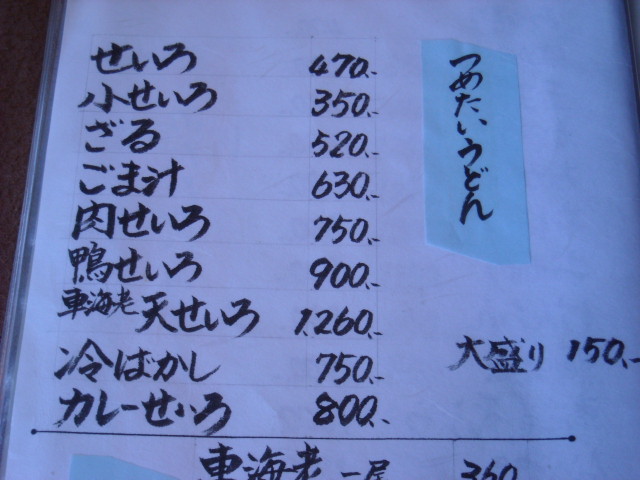 つめたいうどん
せいろ 470.-
小せいろ 350.-
ざる 520.-
ごま汁 630.-
肉せいろ 750.-
鴨せいろ 900.-
車海老天せいろ 1260.-
冷ばかし 750.-
カレーせいろ 800.-
大盛り 150.-
車海老 一尾 360